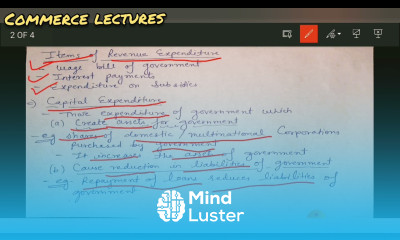 COMMERCE LECTURES
2 OF 4
Items of Revenue Expenditure
Wage bill of government
Interest payments
Expenditure on subsidies
Capital Expenditure
- Those expenditure of government which
(a) Create assets for government
- eg. shares of domestic/multinational Corporations
purchased by government
- It increases the asset of government
(b) Cause reduction in liabilities of government
- eg. Repayment of loans reduces liabilities of
government
Mind
Luster